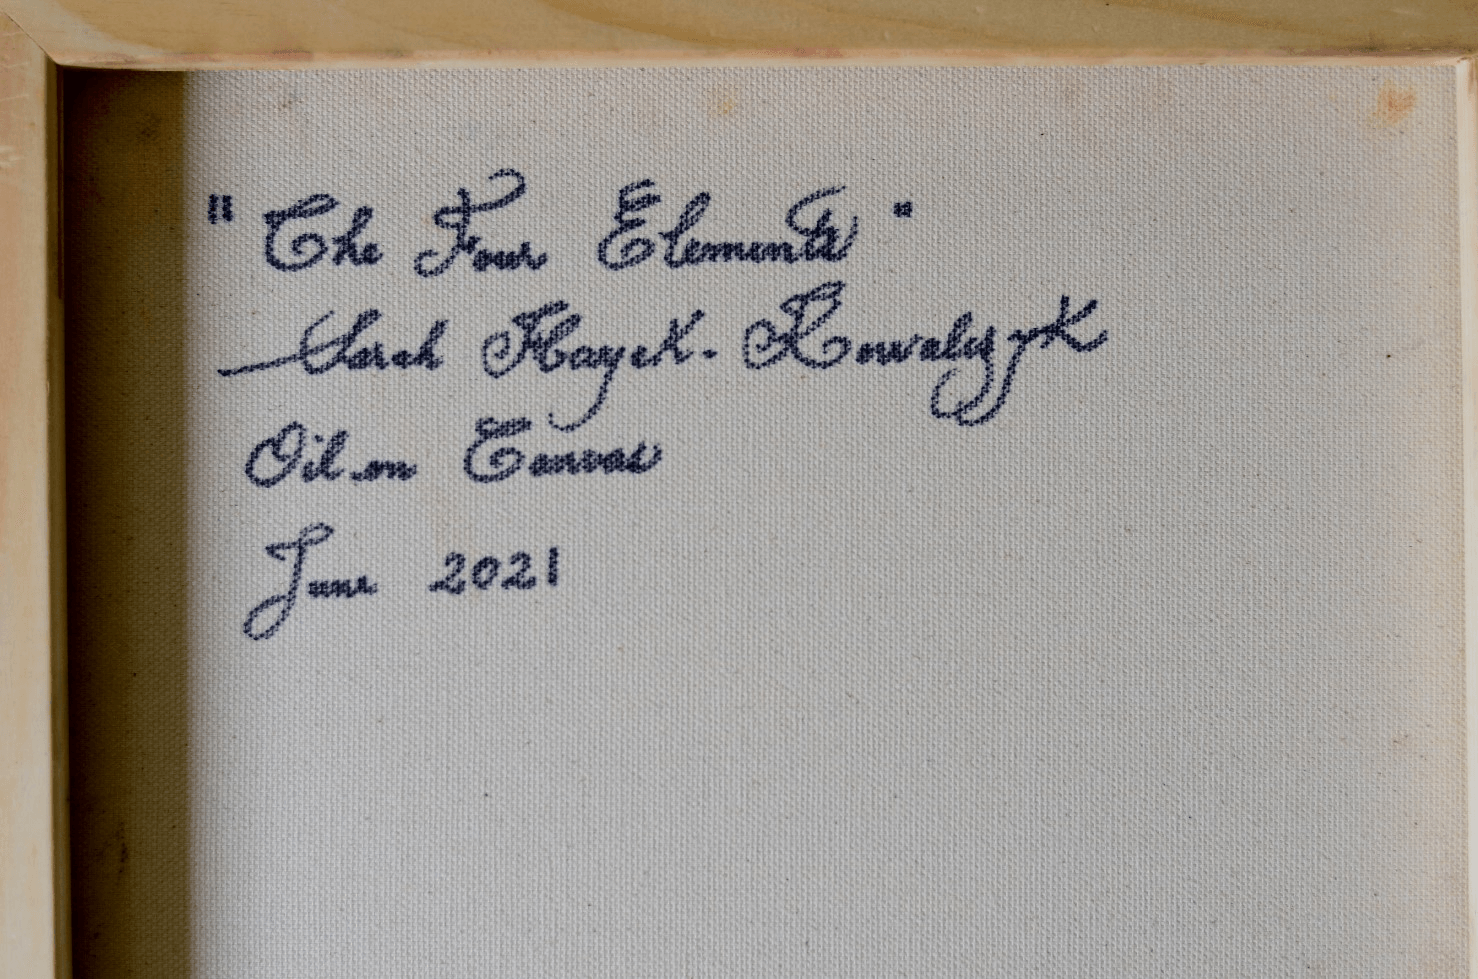 "The Four Elements"
Sarah Hayek-Kowalczyk
Oil on Canvas
June 2021